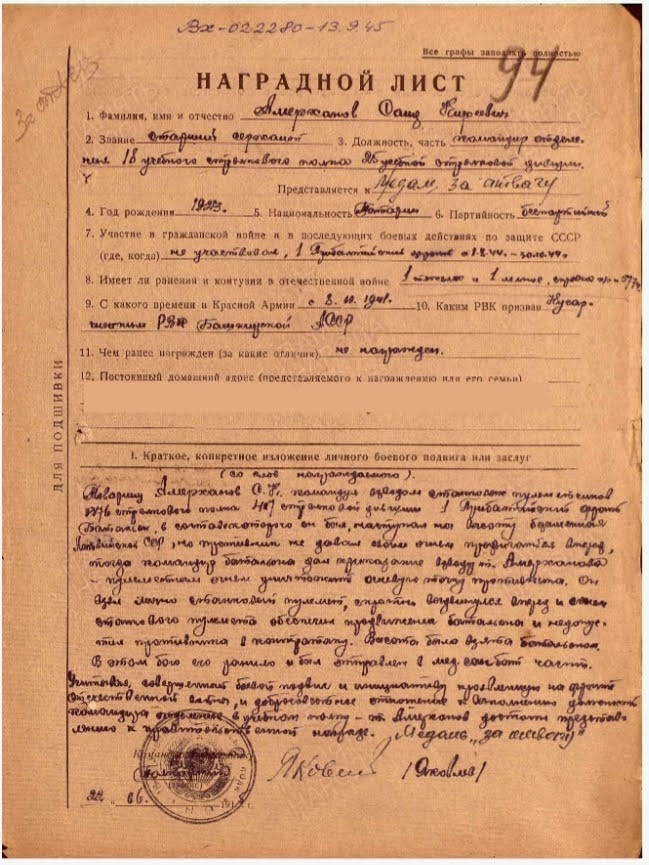 Вх-022280-13.9.45
Все графы заполнять полностью
94
НАГРАДНОЙ ЛИСТ
1. Фамилия, имя и отчество Амерханов
2. Звание старший сержант 3. Должность, часть командир отделе-
ния 18 учебного стрелкового полка учебной стрелковой дивизии.
Представляется к медали за отвагу
4. Год рождения 1923. 5. Национальность татарин 6. Партийность беспартийный
7. Участие в гражданской войне и в последующих боевых действиях по защите СССР
(где, когда) не участвовал, 1 Прибалтийский фронт с
8. Имеет ли ранения и контузии в отечественной войне 1 тяжелое и 1 легкое, справка
9. С какого времени в Красной Армии с 8.10.1941. 10. Каким РВК призван
РВК Башкирской АССР
11. Чем ранее награжден (за какие отличия) не награжден.
12. Постоянный домашний адрес (представляемого к награждению или его семьи)
ДЛЯ ПОДШИВКИ
I. Краткое, конкретное изложение личного боевого подвига или заслуг
(со слов награждаемого).
Товарищ Амерханов командуя взводом станковых пулеметчиков
стрелкового полка стрелковой дивизии 1 Прибалтийский фронт
Батальон, в составе которого он был, наступал на высоту
Латвийской ССР, но противник не давал своим огнем продвигаться вперед,
тогда командир батальона дал приказание взводу т. Амерханова
- пулеметным огнем уничтожить огневую точку противника. Он
взял лично станковый пулемет, скрытно выдвинулся вперед и огнем
станкового пулемета обеспечил продвижение батальона и недопус-
тил противника в контратаку. Высота была взята батальоном.
В этом бою его ранило и был отправлен в мед. сан бат части.
Учитывая, совершенный боевой подвиг и инициативу проявленную на фронте
отечественной войны, и добросовестное отношение к исполнению должности
командира отделения в учебном полку - т. Амерханов достоин представ-
лению к правительственной награде. Медаль "за отвагу"
Яковлев /Яковлев/
22 06.